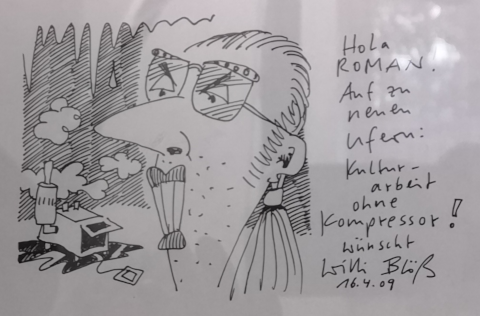 Hola
ROMAN.
Auf zu
neuen
Ufern:
Kultur-
arbeit
ohne
Kompressor!
wünscht
Willi Blöß
16.4.09